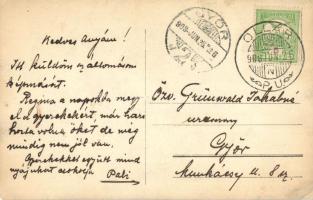 Kedves Anyám!
Itt küldöm az állomásom
képmását.
Regina a napokban meg
el a gyerekekért, már haza
hozta volna őket de még
mindig nem jól van.
Gyerekekkel együtt mind
nyájunkat csókolja
Pali
GYŐR
Özv. Grünwald Jakabné
urasszony
Győr
Munkácsy u. 8 sz.